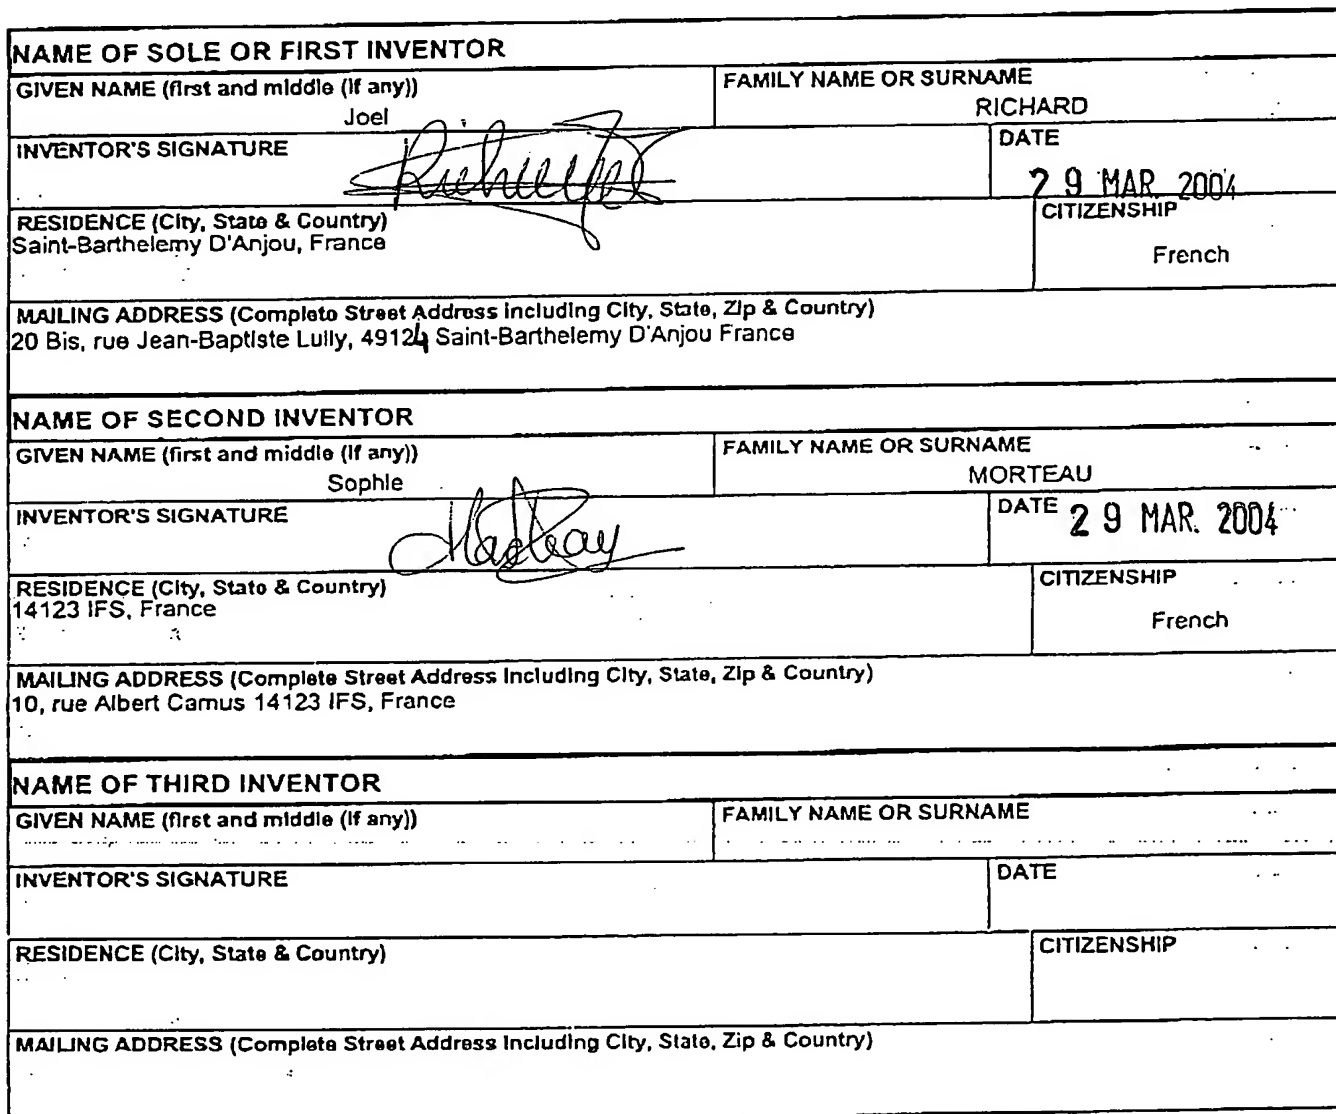 NAME OF SOLE OR FIRST INVENTOR
GIVEN NAME (first and middle (if any))
Joel
FAMILY NAME OR SURNAME
RICHARD
INVENTOR'S SIGNATURE
DATE
29 MAR. 2004
RESIDENCE (City, State & Country)
Saint-Barthelemy D'Anjou, France
CITIZENSHIP
French
MAILING ADDRESS (Complete Street Address including City, State, Zip & Country)
20 Bis, rue Jean-Baptiste Lully, 49124 Saint-Barthelemy D'Anjou France
NAME OF SECOND INVENTOR
GIVEN NAME (first and middle (if any))
Sophie
FAMILY NAME OR SURNAME
MORTEAU
INVENTOR'S SIGNATURE
DATE
29 MAR. 2004
RESIDENCE (City, State & Country)
14123 IFS, France
CITIZENSHIP
French
MAILING ADDRESS (Complete Street Address Including City, State, Zip & Country)
10, rue Albert Camus 14123 IFS, France
NAME OF THIRD INVENTOR
GIVEN NAME (first and middle (if any))
FAMILY NAME OR SURNAME
INVENTOR'S SIGNATURE
DATE
RESIDENCE (City, State & Country)
CITIZENSHIP
MAILING ADDRESS (Complete Street Address Including City, State, Zip & Country)